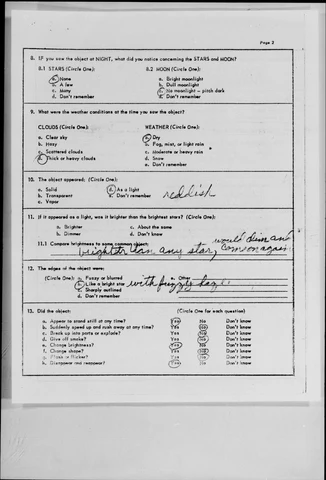 Page 2
8. IF you saw the object at NIGHT, what did you notice concerning the STARS and MOON?
8.1 STARS (Circle One): 8.2 MOON (Circle One):
a. None a. Bright moonlight
b. A few b. Dull moonlight
c. Many c. No moonlight – pitch dark
d. Don't remember d. Don't remember
9. What were the weather conditions at the time you saw the object?
CLOUDS (Circle One): WEATHER (Circle One):
a. Clear sky a. Dry
b. Hazy b. Fog, mist, or light rain
c. Scattered clouds c. Moderate or heavy rain
d. Thick or heavy clouds d. Snow
e. Don't remember
10. The object appeared: (Circle One):
a. Solid d. As a light
b. Transparent e. Don't remember reddish
c. Vapor
11. If it appeared as a light, was it brighter than the brightest stars? (Circle One):
a. Brighter c. About the same
b. Dimmer d. Don't know
11.1 Compare brightness to some common object:
brighter than any star, would dim and come on again
12. The edges of the object were:
(Circle One): a. Fuzzy or blurred e. Other
b. Like a bright star with fuzzy haze
c. Sharply outlined
d. Don't remember
13. Did the object: (Circle One for each question)
a. Appear to stand still at any time? Yes No Don't know
b. Suddenly speed up and rush away at any time? Yes No Don't know
c. Break up into parts or explode? Yes No Don't know
d. Give off smoke? Yes No Don't know
e. Change brightness? Yes No Don't know
f. Change shape? Yes No Don't know
g. Flash or flicker? Yes No Don't know
h. Disappear and reappear? Yes No Don't know